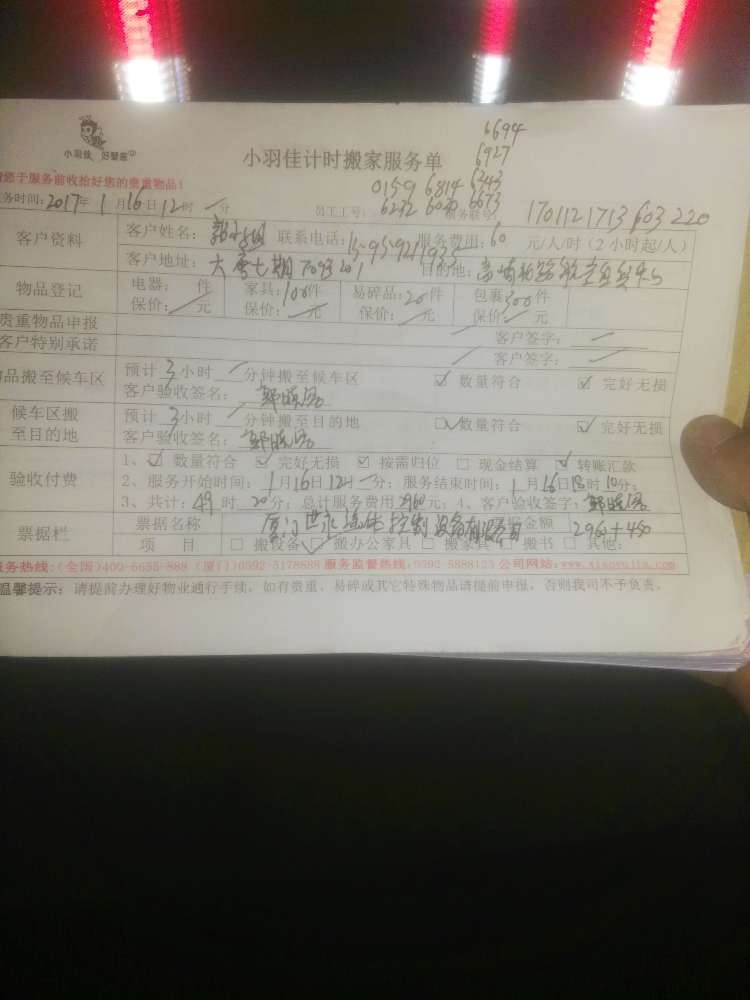 6694
6927
小羽佳 好管家 小羽佳计时搬家服务单 6243
您于服务前收拾好您的贵重物品! 0159 6814 6673
务时间:2017年1月16日12时一分 员工工号: 6232 6020 服务联号: 1701121713603220
客户资料 客户姓名: 联系电话: 服务费用:60元/人/时(2小时起/人)
客户地址: 目的地:
物品登记 电器: 件 家具:100件 易碎品:20件 包裹:300件
保价: 元 保价: 元 保价: 元 保价: 元
贵重物品申报 客户签字:
客户特别承诺 客户签字:
品搬至候车区 预计3小时 分钟搬至候车区 ☑数量符合 ☑完好无损
客户验收签名:
候车区搬至目的地 预计3小时 分钟搬至目的地 ☑数量符合 ☑完好无损
客户验收签名:
验收付费 1、☑数量符合 ☑完好无损 ☑按需归位 □现金结算 ☑转账汇款
2、服务开始时间:1月16日12时一分;服务结束时间:1月16日18时10分;
3、共计:49时20分;总计服务费用2960元;4、客户验收签字:
票据栏 票据名称 金额 2960+480
项 目 □搬设备 □搬办公家具 □搬家具 □搬书 □其他:
服务热线:(全国)400-6655-888 (厦门)0592-5178888 服务监督热线:0592 5888123 公司网站:www.xiaoyujia.com
温馨提示:请提前办理好物业通行手续,如有贵重、易碎或其它特殊物品请提前申报,否则我司不予负责。